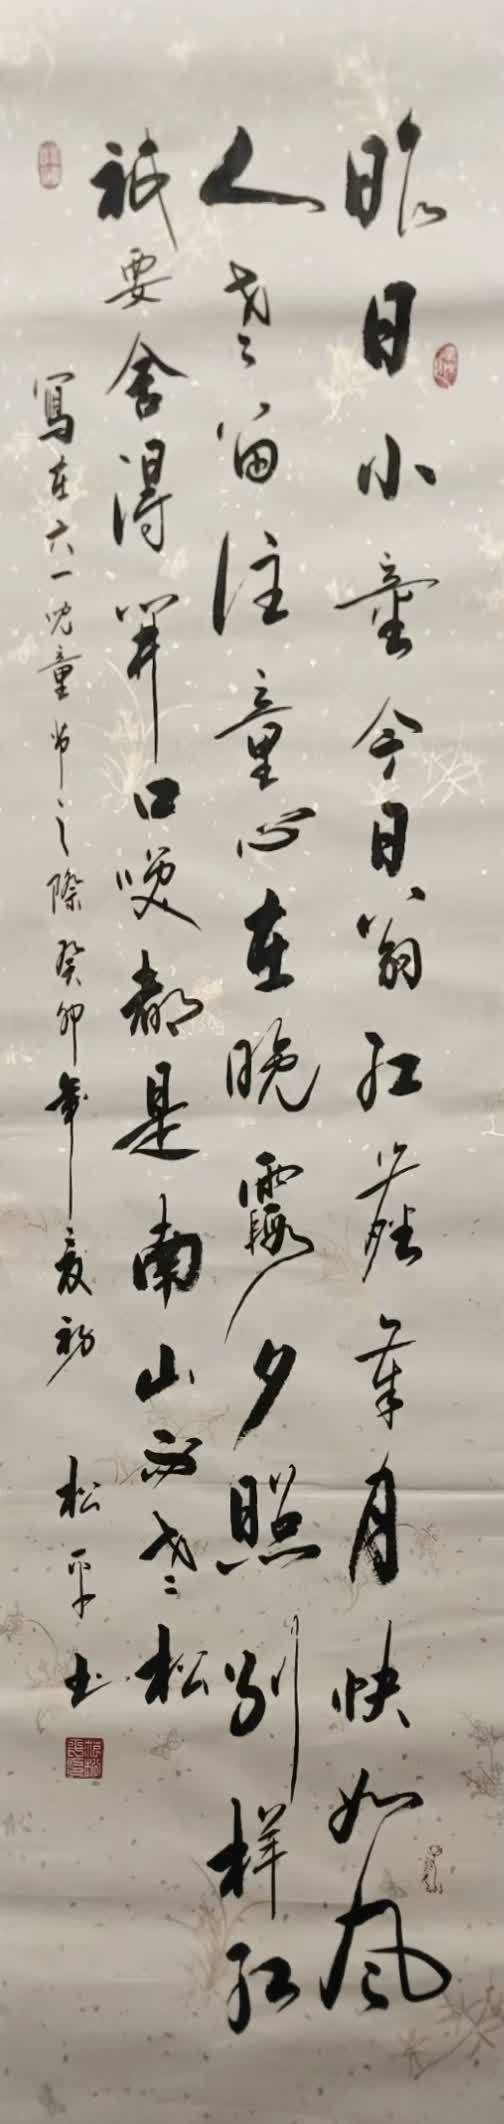 昨日小童今日翁红年月快如风
人老留住童心在晚霞夕照别样红
祇要舍得开口笑都是南山不老松
寫在六一兒童节之際癸卯年夏初 松平书